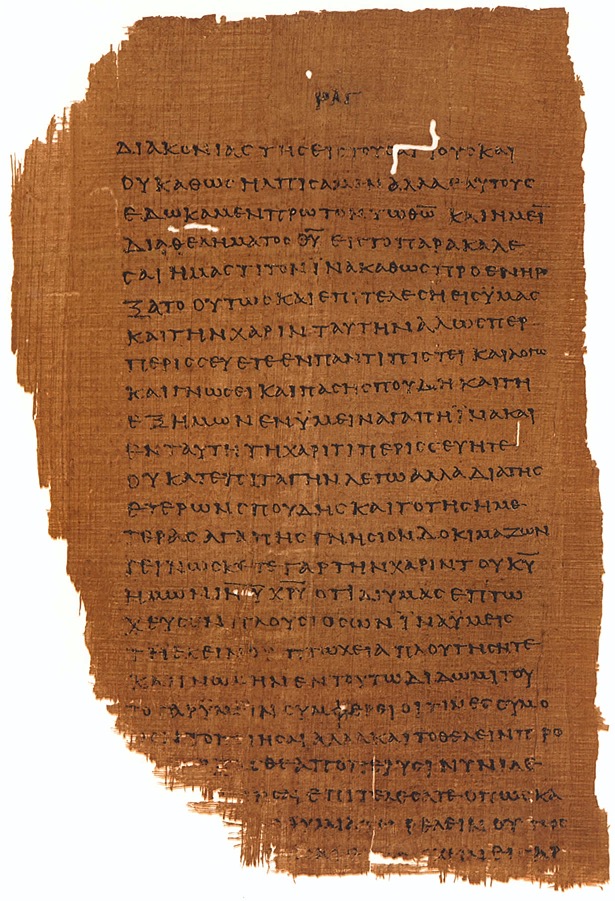 ΡΛΓ
ΔΙΑΚΟΝΙΑϹΤΗϹΕΙϹΤΟΥϹΑΓΙΟΥϹΚΑΙ
ΟΥΚΑΘΩϹΗΛΠΙϹΑΜΕΝΑΛΛΑΕΑΥΤΟΥϹ
ΕΔΩΚΑΜΕΝΠΡΩΤΟΝΤΩΘ̅Ω̅ ΚΑΙΗΜΕΙ̅
ΔΙΑΘΕΛΗΜΑΤΟϹΘ̅Υ̅ ΕΙϹΤΟΠΑΡΑΚΑΛΕ
ϹΑΙΗΜΑϹΤΙΤΟΝΪΝΑΚΑΘΩϹΠΡΟΕΝΗΡ
ΞΑΤΟΟΥΤΩϹΚΑΙΕΠΙΤΕΛΕϹΗΕΙϹΫΜΑϹ
ΚΑΙΤΗΝΧΑΡΙΝΤΑΥΤΗΝΑΛΛΩϹΠΕΡ
ΠΕΡΙϹϹΕΥΕΤΕΕΝΠΑΝΤΙΠΙϹΤΕΙ ΚΑΙΛΟΓΩ
ΚΑΙΓΝΩϹΕΙΚΑΙΠΑϹΗϹΠΟΥΔΗΚΑΙΤΗ
ΕΞΗΜΩΝΕΝΫΜΕΙΝΑΓΑΠΗΪΝΑΚΑΙ
ΕΝΤΑΥΤΗΤΗΧΑΡΙΤΙΠΕΡΙϹϹΕΥΗΤΕ
ΟΥΚΑΤΕΠΙΤΑΓΗΝΛΕΓΩΑΛΛΑΔΙΑΤΗϹ
ΕΤΕΡΩΝϹΠΟΥΔΗϹΚΑΙΤΟΤΗϹΗΜΕ
ΤΕΡΑϹΑΓΑΠΗϹΓΝΗϹΙΟΝΔΟΚΙΜΑΖΩΝ
ΓΕΙΝΩϹΚΕΤΕΓΑΡΤΗΝΧΑΡΙΝΤΟΥΚ̅Υ̅
ΗΜΩΝΙ̅Η̅Υ̅ Χ̅Ρ̅Υ̅ ΟΤΙΔΙΥΜΑϹΕΠΤΩ
ΧΕΥϹΕΝΠΛΟΥϹΙΟϹΩΝΪΝΑΫΜΕΙϹ
ΤΗΕΚΕΙΝΟΥΠΤΩΧΕΙΑΠΛΟΥΤΗϹΗΤΕ
ΚΑΙΓΝΩΜΗΝΕΝΤΟΥΤΩΔΙΔΩΜΙΤΟΥ
ΤΟΓΑΡΫΜΕΙΝϹΥΜΦΕΡΕΙΟΙΤΙΝΕϹΟΥΜΟ
ΠΟΙΗϹΑΙΑΛΛΑΚΑΙΤΟΘΕΛΕΙΝΠΡΟ
ΑΠΟΠΕΡΥϹΙΝΥΝΙΔΕ
ΕΠΙΤΕΛΕϹΑΤΕΟΠΩϹΚΑ
ΘΕΛΕΙΝΟΥΤΩϹ